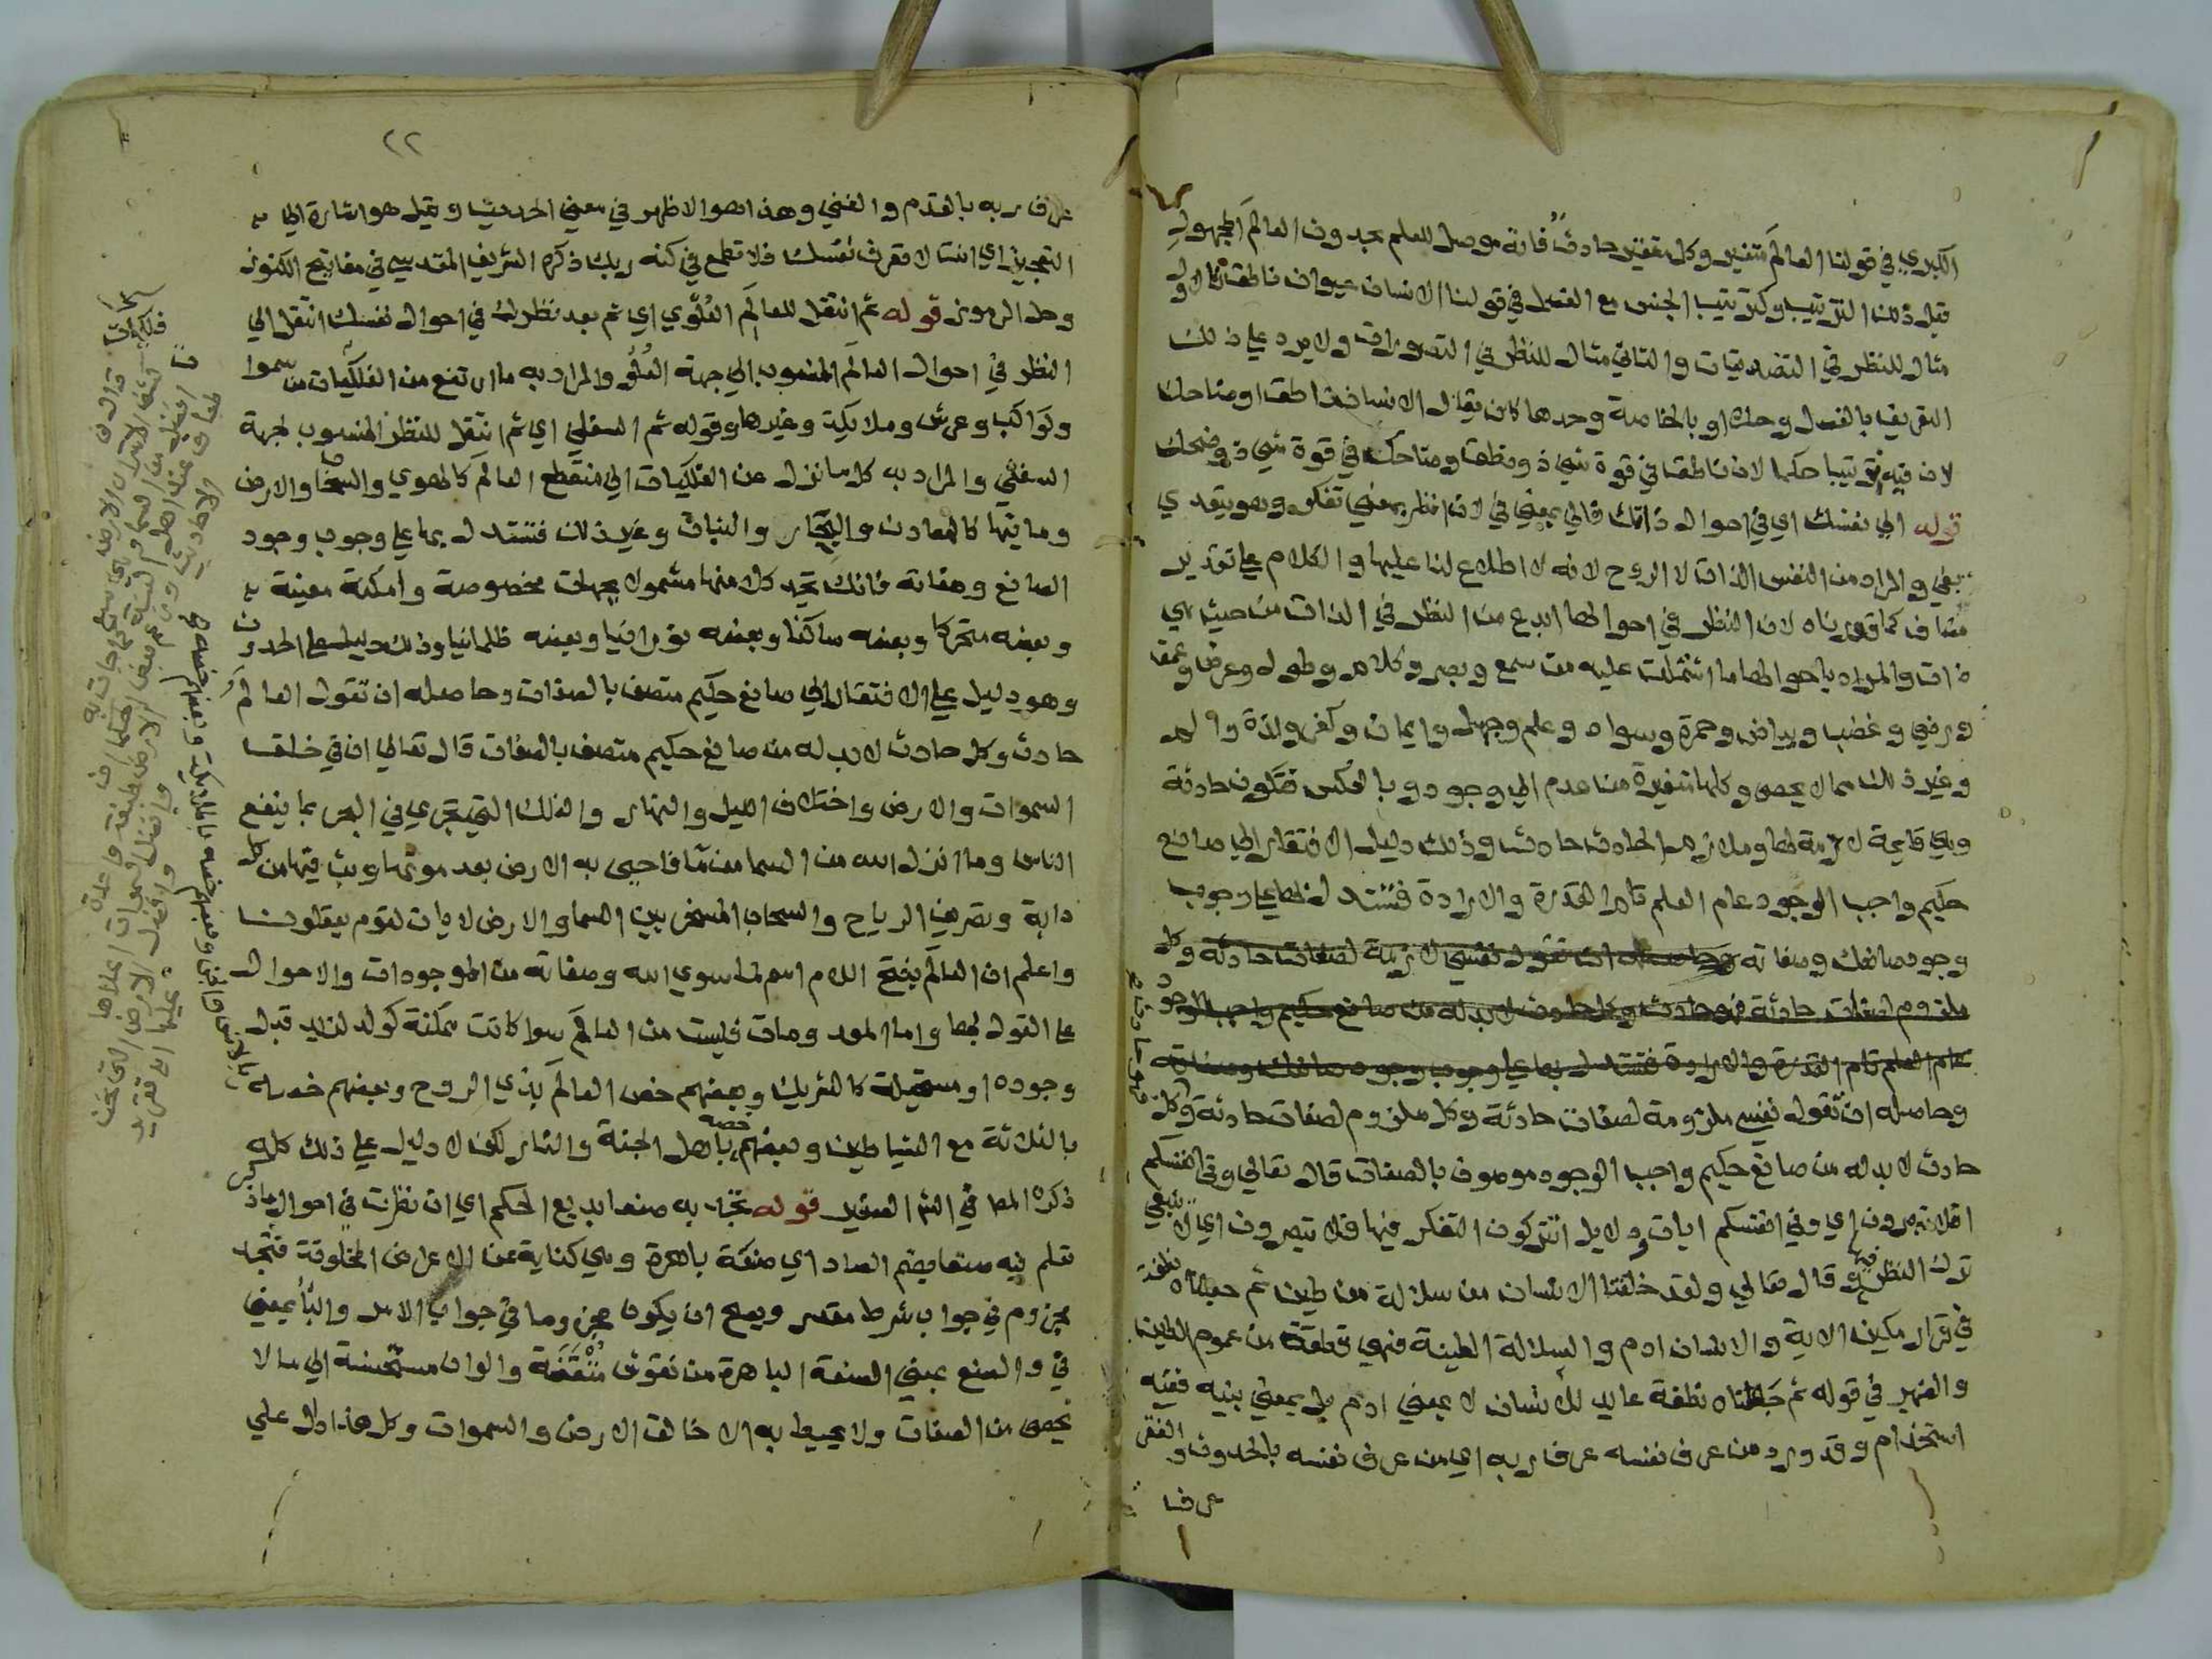 الكبري في قولنا العالم متغير وكل متغير حادث فانه موصل للعلم بحدوث العالم المجهول
قبل ذلك الترتيب وكترتيب الجنس مع الفصل في قولنا الانسان حيوان ناطق فالاول
مثال للنظر في التصديقات والثاني مثال للنظر في التصورات ولا يرد علي ذلك
التعريف بالفصل وحده او بالخاصة وحدها كان يقال الانسان ناطق او ضاحك
لان فيه ترتيبا حكما لان ناطقا في قوة شي ذو نطق وضاحك في قوة شي ذو ضحك
قوله الي نفسك اي في احوال ذاتك فالي بمعني في لان نظر بمعني تفكر وهو يتعدي
بفي والمراد من النفس الذات لا الروح لانه لا اطلاع لنا عليها والكلام علي تقدير
مضاف كما قررناه لان النظر في احوالها ابدع من النظر في الذات من حيث هي
ذات والمراد باحوالها ما اشتملت عليه من سمع وبصر وكلام وطول وعرض وعمق
ورضي وغضب وبياض وحمرة وسواد وعلم وجهل وايمان وكفر ولذة والم
وغير ذلك مما لا يحصي وكلها متغيرة من عدم الي وجود وبالعكس فتكون حادثة
وهي قايمة لازمة لها وملازم الحادث حادث وذلك دليل الافتقار الي صانع
حكيم واجب الوجود عام العلم تام القدرة والارادة فتستدل بها علي وجوب
وجود صانعك وصفاته وحاصله ان تقول نفسي لازمة لصفات حادثة وكل
ملزوم لصفات حادثة فهو حادث وكل حادث لا بد له من صانع حكيم واجب الوجود
عام العلم تام القدرة والارادة فتستدل بها علي وجوب وجود صانعك وصفاته
وحاصله ان تقول نفسي ملزومة لصفات حادثة وكل ملزوم لصفات حادثة وكل
حادث لا بد له من صانع حكيم واجب الوجود موصوف بالصفات قال تعالي وفي انفسكم
افلا تبصرون اي وفي انفسكم ايات ودلايل اتتركون التفكر فيها فلا تبصرون اي لا ينبغي
ترك النظر فيها وقال تعالي ولقد خلقنا الانسان من سلالة من طين ثم جعلناه نطفة
في قرار مكين الاية والانسان ادم والسلالة الطينة فهي قطعة من عموم الطين
والضمير في قوله ثم جعلناه نطفة عايد للانسان لا بمعني ادم بل بمعني بنيه ففيه
استخدام وقد ورد من عرف نفسه عرف ربه اي من عرف نفسه بالحدوث والفقر
عرف
٢٢
عرف ربه بالقدم والغني وهذا هو الاظهر في معني الحديث وقيل هو اشارة الي
التعجيز اي انت لا تعرف نفسك فلا تطمع في كنه ربك ذكره الشريف المقدسي في مفاتيح الكنوز
وحل الرموز قوله ثم انتقل للعالم العلوي اي ثم بعد نظرك في احوال نفسك انتقل الي
النظر في احوال العالم المنسوب الي جهة العلو والمراد به ما ارتفع من الفلكيات من سموات
وكواكب وعرش وملايكة وغيرها وقوله ثم السفلي اي ثم انتقل للنظر المنسوب لجهة
السفلي والمراد به كل ما نزل عن الفلكيات الي منقطع العالم كالهوي والسحاب والارض
وما فيها كالمعادن والبحار والنبات وغير ذلك فتستدل بها علي وجوب وجود
الصانع وصفاته فانك تجد كلا منها مشمولا بجهات مخصوصة وامكنة معينة
وبعضه متحركا وبعضه ساكنا وبعضه نورانيا وبعضه ظلمانيا وذلك دليل علي الحدوث
وهو دليل علي الافتقار الي صانع حكيم متصف بالصفات وحاصله ان تقول العالم
حادث وكل حادث لا بد له من صانع حكيم متصف بالصفات قال تعالي ان في خلق
السموات والارض واختلاف الليل والنهار والفلك التي تجري في البحر بما ينفع
الناس وما انزل الله من السما من ما فاحيي به الارض بعد موتها وبث فيها من كل
دابة وتصريف الرياح والسحاب المسخر بين السما والارض لايات لقوم يعقلون
واعلم ان العالم بفتح اللام اسم لما سوي الله وصفاته من الموجودات والاحوال
علي القول بها واما المعدومات فليست من العالم سوا كانت ممكنة كولد لزيد قبل
وجوده او مستحيلة كالشريك وبعضهم خص العالم بذي الروح وبعضهم خصه
بالثلاثة مع الشياطين وبعضهم خصه باهل الجنة والنار لكن لا دليل علي ذلك كله
ذكره المص في الشرح الصغير قوله تجد به صنعا بديع الحكم اي ان نظرت في احوال ما ذكر
تعلم فيه صنعا بضم الصاد اي صنعة باهرة وهي كناية عن الاعراض المخلوقة فتجد
مجزوم في جواب شرط مقدر ويصح ان يكون مجزوما في جواب الامر والبا بمعني
في والصنع بمعني الصنعة الباهرة من نقوش متقنة والوان مستحسنة الي ما لا
يحصي من الصفات ولا يحيط به الا خالق الارض والسموات وكل هذا دل علي